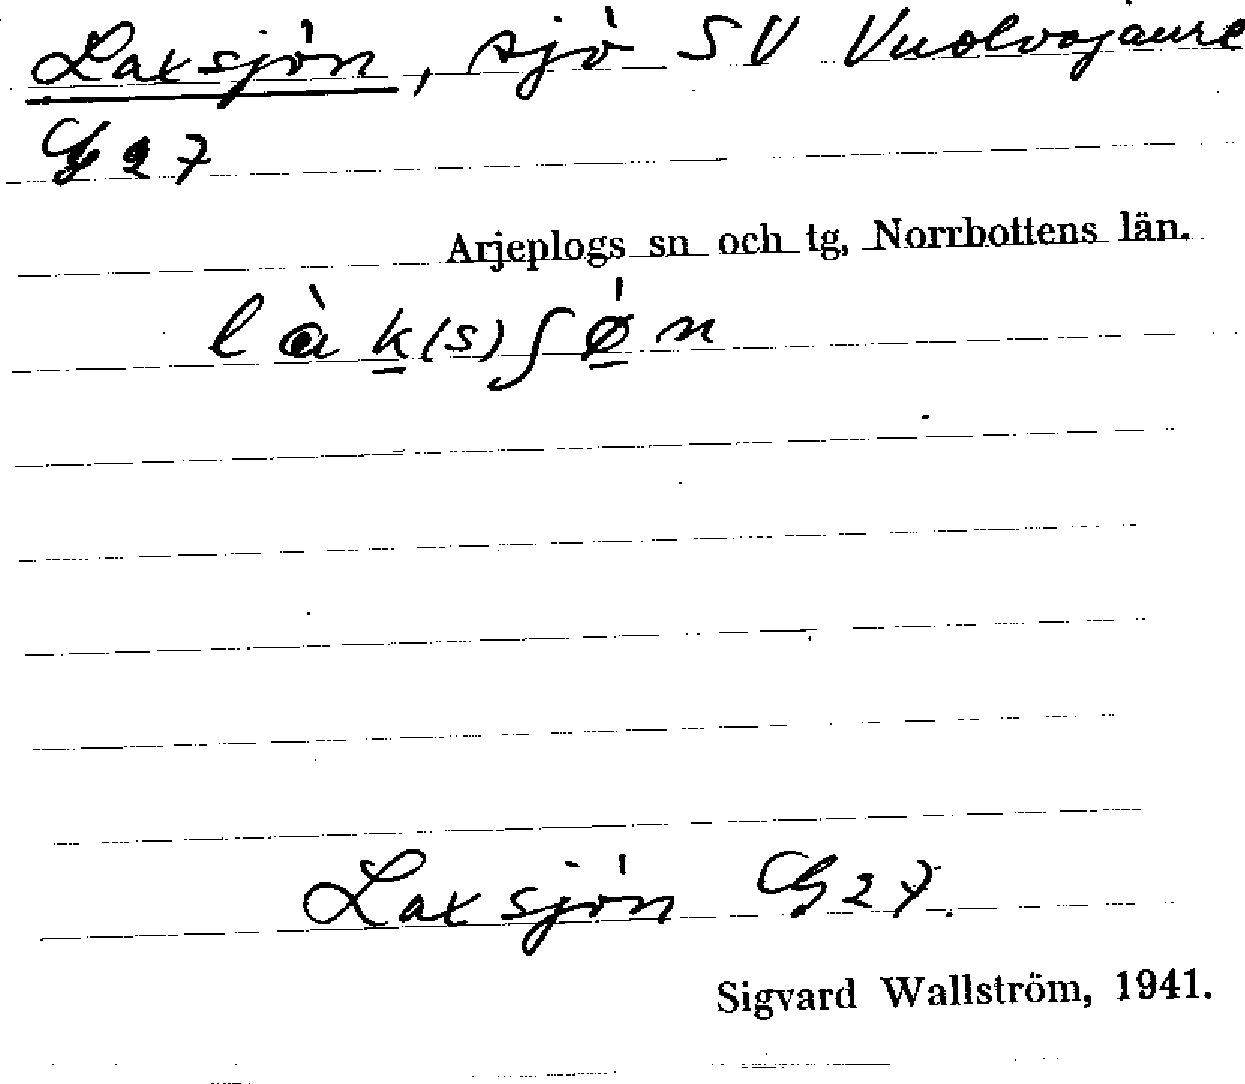 Laxsjön, sjö SV Vuolvojaure
G 27
Arjeplogs sn och tg, Norrbottens län.
là k(s)ʃǿn
Laxsjön G 27.
Sigvard Wallström, 1941.